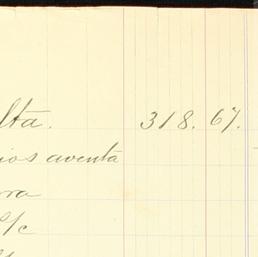 lta. 318.67.
ios aventa
ra
c/c